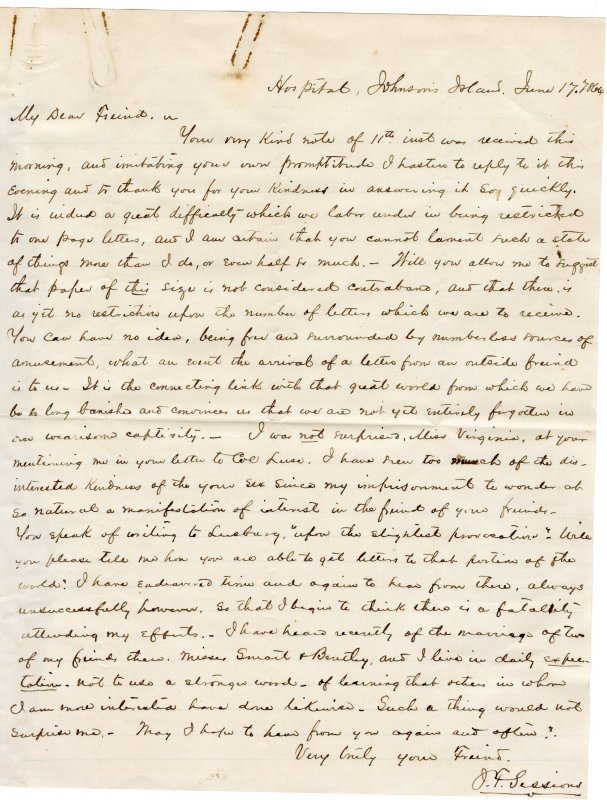 Hospital, Johnson's Island, June 17th, 1864
My Dear Freind. —
Your very kind note of 11th inst was received this
morning, and imitating your own promptitude I hasten to reply to it this
evening and to thank you for your kindness in answering it so quickly.
It is indeed a great difficulty which we labor under in being restricted
to one page letters, and I am certain that you cannot lament such a state
of things more than I do, or even half so much. — Will you allow me to suggest
that paper of this size is not considered contraband, and that there is
as yet no restriction upon the number of letters which we are to receive.
You can have no idea, being free and surrounded by numberless sources of
amusement, what an event the arrival of a letter from an outside freind
is to us — It is the connecting link with that great world from which we have
be so long banished and convinces us that we are not yet entirely forgotten in
our wearisome captivity. — I was not surprised, Miss Virginia, at your
mentioning me in your letter to Col Luse. I have seen too much of the dis-
interested kindness of the your sex since my imprisonment to wonder at
so natural a manifestation of interest in the freind of your freinds.
You speak of writing to Leesburg, "upon the slightest provocation". Will
you please tell me how you are able to get letters to that portion of the
world? I have endeavored time and again to hear from there, always
unsuccessfully however, so that I begin to think there is a fatality
attending my efforts. — I have heard recently of the marriage of two
of my freinds there. Misses Smart & Bently, and I live in daily expec-
tation — not to use a stronger word — of learning that others in whom
I am more interested have done likewise — Such a thing would not
surprise me. — May I hope to hear from you again and often?.
Very truly your Freind.
J. F. Sessions